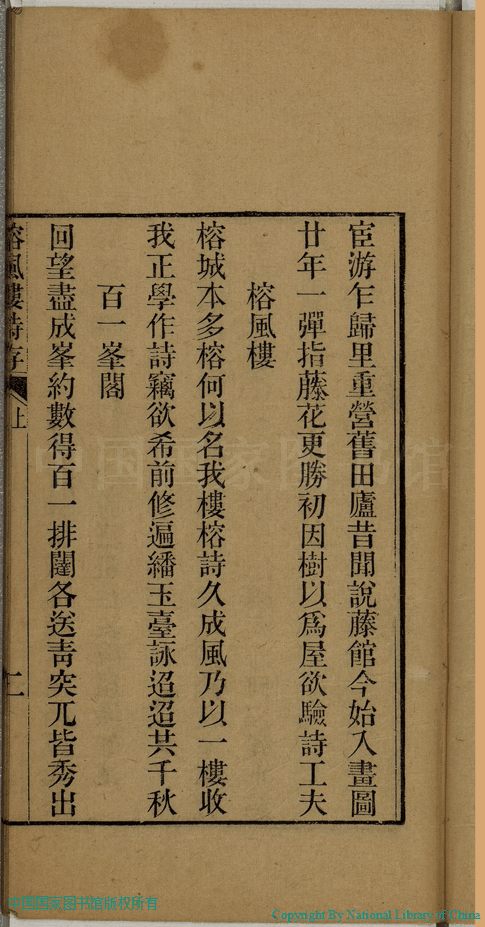 宦游乍歸里重營舊田廬昔聞說藤館今始入畫圖
廿年一彈指藤花更勝初因樹以爲屋欲驗詩工夫
榕風樓
榕城本多榕何以名我樓榕詩久成風乃以一樓收
我正學作詩竊欲希前修遍繙玉臺詠迢迢共千秋
百一峯閣
回望盡成峯約數得百一排闥各送靑突兀皆秀出
榕風樓詩存 上 二
中国国家图书馆
中国国家图书馆版权所有
Copyright By National Library of China